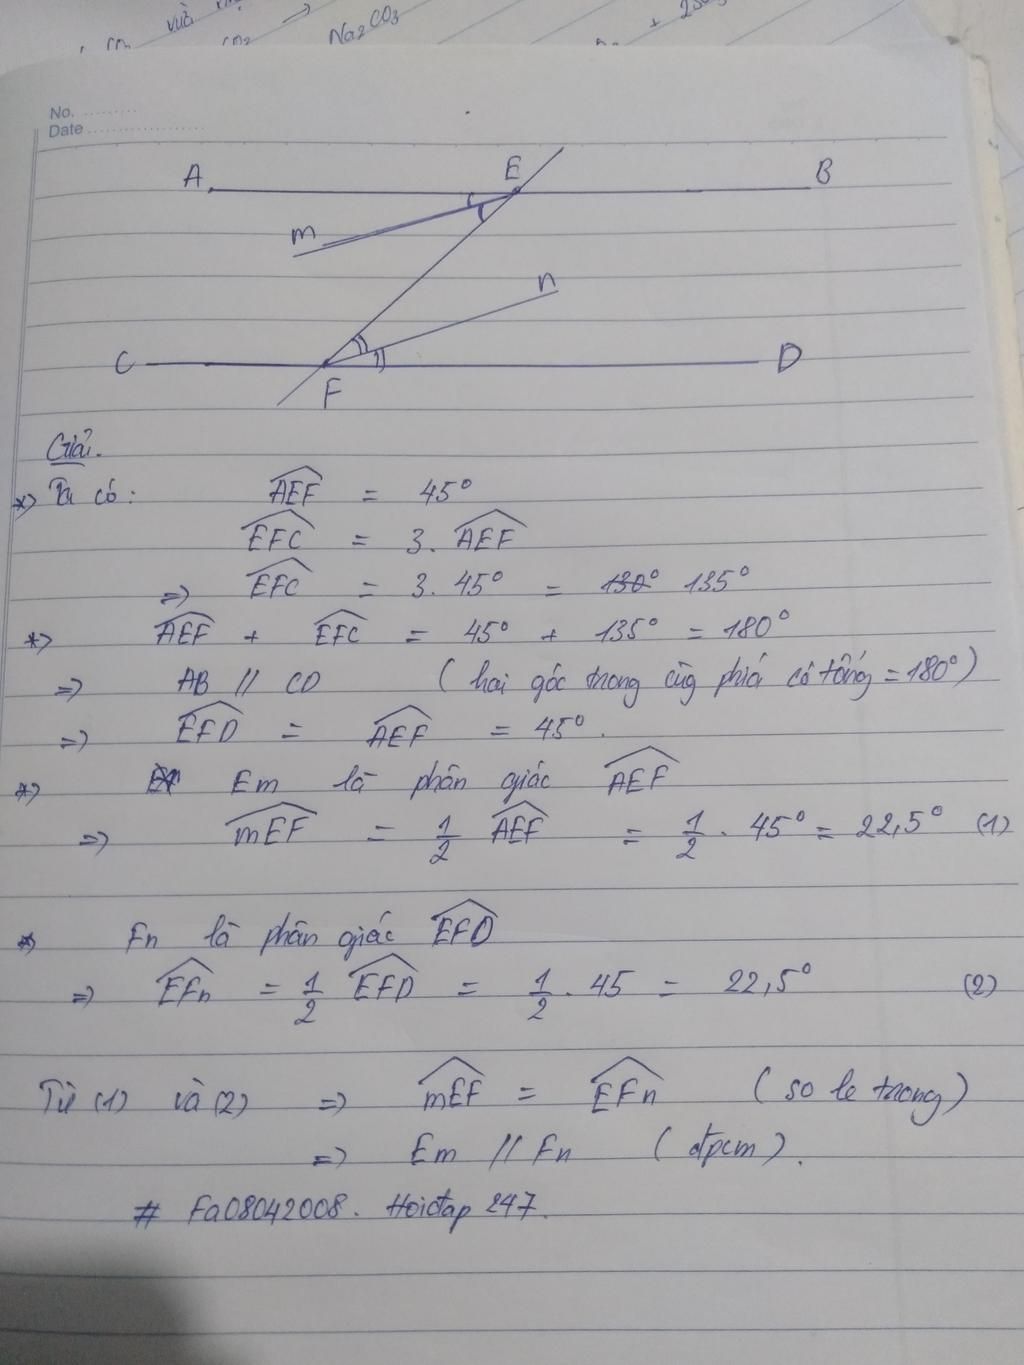 vừa
Na₂CO₃
No.
Date
A E B
m
n
C F D
Giải.
*) Ta có: AEF = 45°
EFC = 3. AEF
=> EFC = 3. 45° = 130° 135°
*) AEF + EFC = 45° + 135° = 180°
=> AB // CD ( hai góc trong cùg phiá có tổng = 180°)
=> EFD = AEF = 45°.
*) Em là phân giác AEF
=> mEF = 1/2 AEF = 1/2 . 45° = 22,5° (1)
* Fn là phân giác EFD
=> EFn = 1/2 EFD = 1/2 . 45 = 22,5° (2)
Từ (1) và (2) => mEF = EFn ( so le trong)
=> Em // Fn ( đpcm ).
# Fa08042008. Hoidap 247.